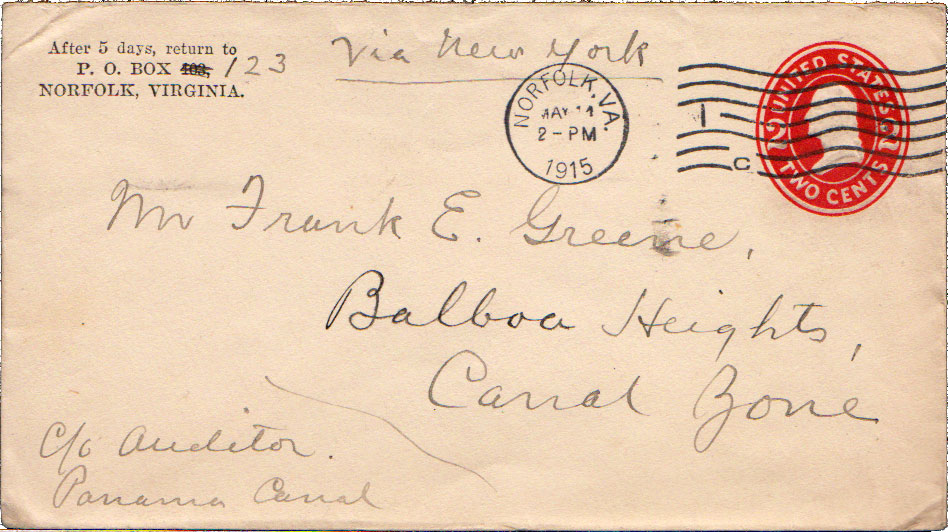 After 5 days, return to
P. O. BOX 403, 123
NORFOLK, VIRGINIA.
Via New York
NORFOLK, VA.
MAY 14
2-PM
1915
1
C
UNITED STATES
2 2
TWO CENTS
Mr Frank E. Greene,
Balboa Heights,
Canal Zone
c/o Auditor.
Panama Canal